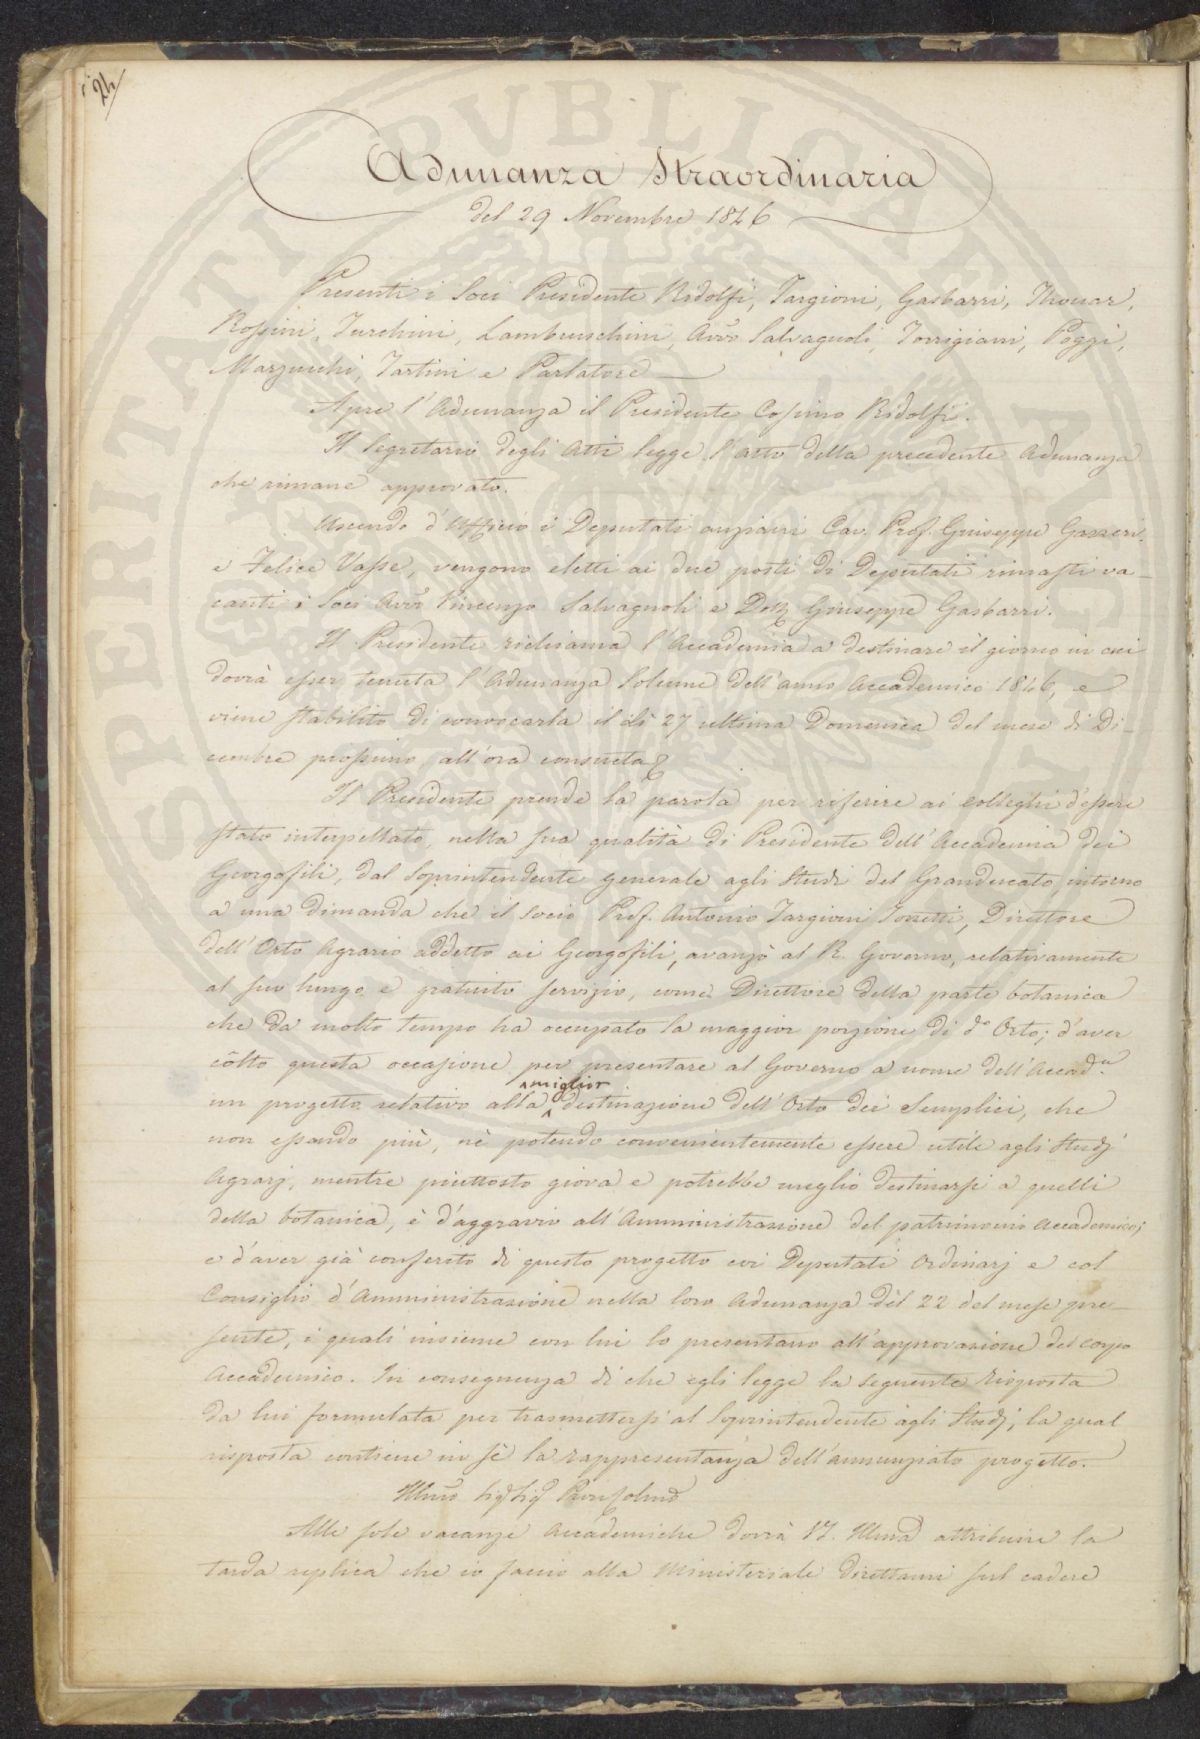 24
Adunanza Straordinaria
del 29 Novembre 1846
Presenti i Soci Presidente Ridolfi, Targioni, Gasbarri, Thouar,
Rossini, Turchini, Lambruschini, Avv. Salvagnoli, Torrigiani, Poggi,
Marzucchi, Tartini e Parlatore
Apre l'Adunanza il Presidente Cosimo Ridolfi.
Il Segretario degli Atti legge l'atto della precedente Adunanza
che rimane approvato.
Uscendo d'Uffizio i Deputati anziani Cav. Prof. Giuseppe Gazzeri
e Felice Vasse, vengono eletti ai due posti di Deputati rimasti va-
canti i Soci Avv. Vincenzo Salvagnoli e Dott. Giuseppe Gasbarri.
Il Presidente richiama l'Accademia a destinare il giorno in cui
dovrà esser tenuta l'Adunanza Solenne dell'anno Accademico 1846, e
viene stabilito di convocarla il dì 27 ultima Domenica del mese di Di-
cembre prossimo, all'ora consueta
Il Presidente prende la parola per riferire ai colleghi d'essere
stato interpellato, nella sua qualità di Presidente dell'Accademia dei
Georgofili, dal Soprintendente generale agli Studi del Granducato intorno
a una dimanda che il Socio Prof. Antonio Targioni Tozzetti, Direttore
dell'Orto Agrario addetto ai Georgofili, avanzò al R. Governo, relativamente
al suo lungo e gratuito servizio, come Direttore della parte botanica
che da molto tempo ha occupato la maggior porzione di do Orto; d'aver
còlto questa occasione per presentare al Governo a nome dell'Accad.a
miglior
un progetto relativo alla destinazione dell'Orto dei Semplici, che
non essendo più, nè potendo convenientemente essere utile agli Studj
Agrarj, mentre piuttosto giova e potrebbe meglio destinarsi a quelli
della botanica, è d'aggravio all'Amministrazione del patrimonio Accademico;
e d'aver già conferito di questo progetto coi Deputati Ordinarj e col
Consiglio d'Amministrazione nella loro Adunanza del 22 del mese pre-
sente, i quali insieme con lui lo presentano all'approvazione del corpo
Accademico. In conseguenza di che egli legge la seguente Risposta
da lui formulata per trasmettersi al Soprintendente agli Studj, la qual
risposta contiene in sè la rappresentanza dell'annunziato progetto.
Illmo Sig. Sig. Pron Colmo
Alle sole vacanze Accademiche dovrà V.S. Illma attribuire la
tarda replica che io faccio alla Ministeriale direttami sul cadere